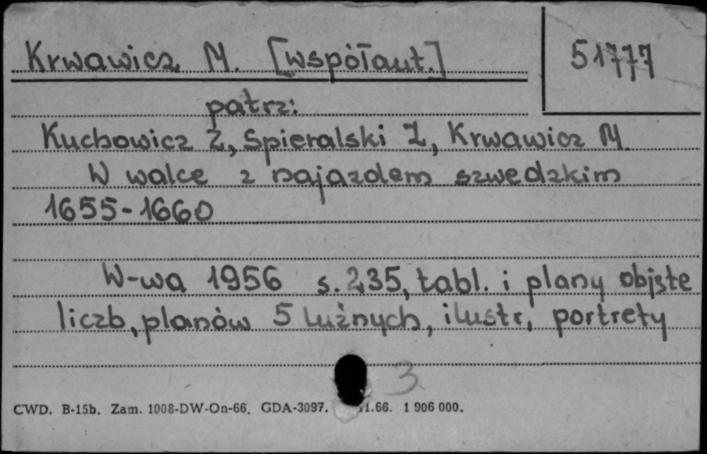 Krwawicz M. [współaut.]
51777
patrz:
Kuchowicz Z, Spieralski Z, Krwawicz M.
W walce z najazdem szwedzkim
1655-1660
W-wa 1956 s. 235, tabl. i plany objęte
liczb, planów 5 luźnych, ilustr, portrety
3
CWD. B-15b. Zam. 1008-DW-On-66. GDA-3097. 11.66. 1 906 000.